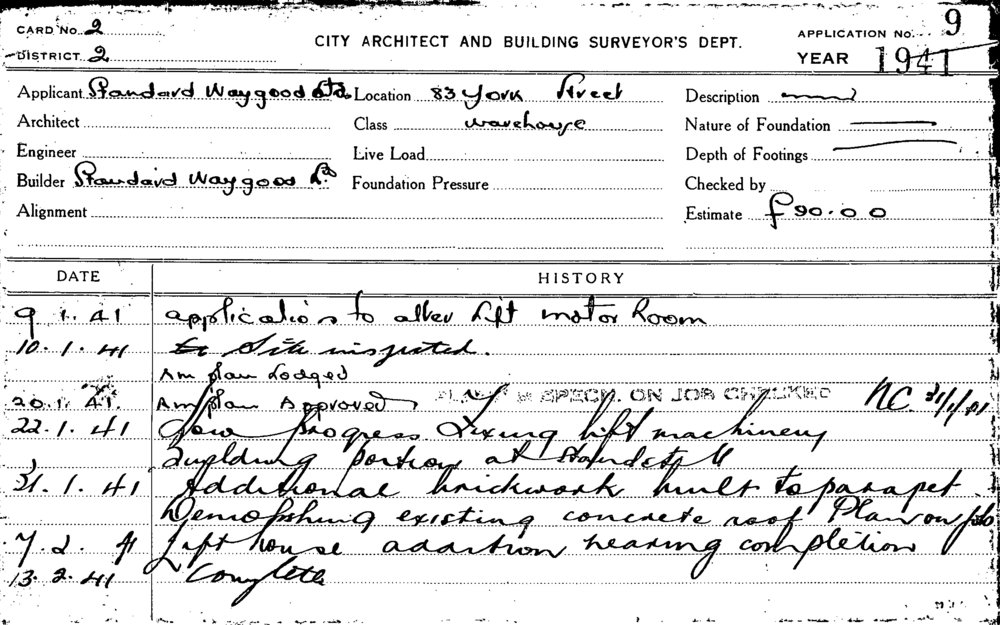 CARD No. 2
DISTRICT. 2
CITY ARCHITECT AND BUILDING SURVEYOR'S DEPT.
APPLICATION No. 9
YEAR 1941
Applicant Standard Waygood Ltd. Location 83 York Street Description
Architect Class warehouse Nature of Foundation
Engineer Live Load Depth of Footings
Builder Standard Waygood Ld Foundation Pressure Checked by
Alignment Estimate £90.0.0
DATE HISTORY
9 1. 41 application to alter Lift motor Room
10. 1. 41 Site inspected.
Am plan Lodged
20.1.41. Am plan Approved PLAN & SPECN. ON JOB CHECKED NC. 31/1/41
22.1.41 Slow progress Fixing lift machinery
Building portion at standstill
31.1.41 Additional brickwork built to parapet
Demolishing existing concrete roof Plan on job
7.2.41 Lift house addition nearing completion
13.2.41 Complete